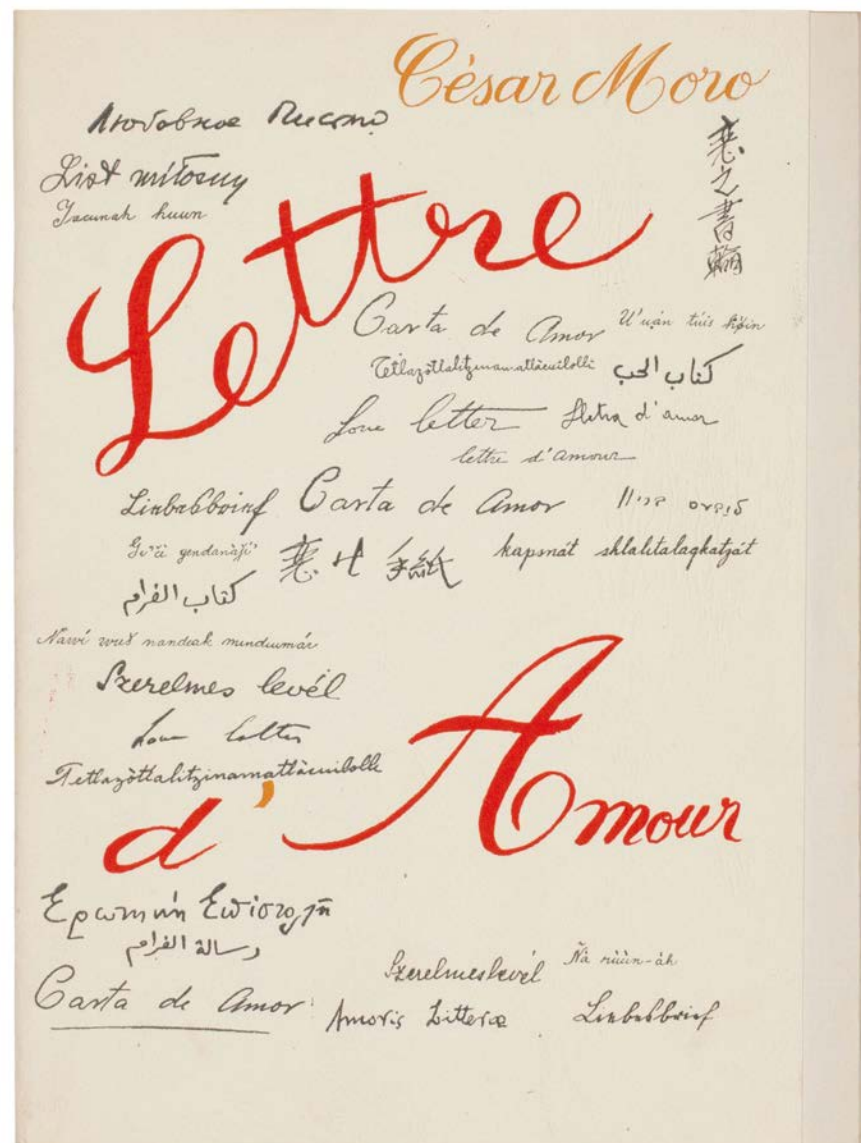 César Moro
Любовное Письмо
List miłosny
Yacunah huun
Lettre
Carta de Amor
U'uán túis
Tetlazòtlalitzinamatlàcuilolli
كتاب الحب
Love letter
Lletra d'amor
lettre d'amour
Liebesbrief
Carta de Amor
gendanàji'
手紙
kapsnát sklalitalaqkatzát
كتاب الغرام
Nawí nandeak mindiumár
Szerelmes levél
Love letter
Tetlazòtlalitzinamatlàcuilolli
d'Amour
Ερωτική Επιστολή
رسالة الغرام
Szerelmeslevél
Ñà nùùn-àh
Carta de Amor
Amoris Litteræ
Liebesbrief